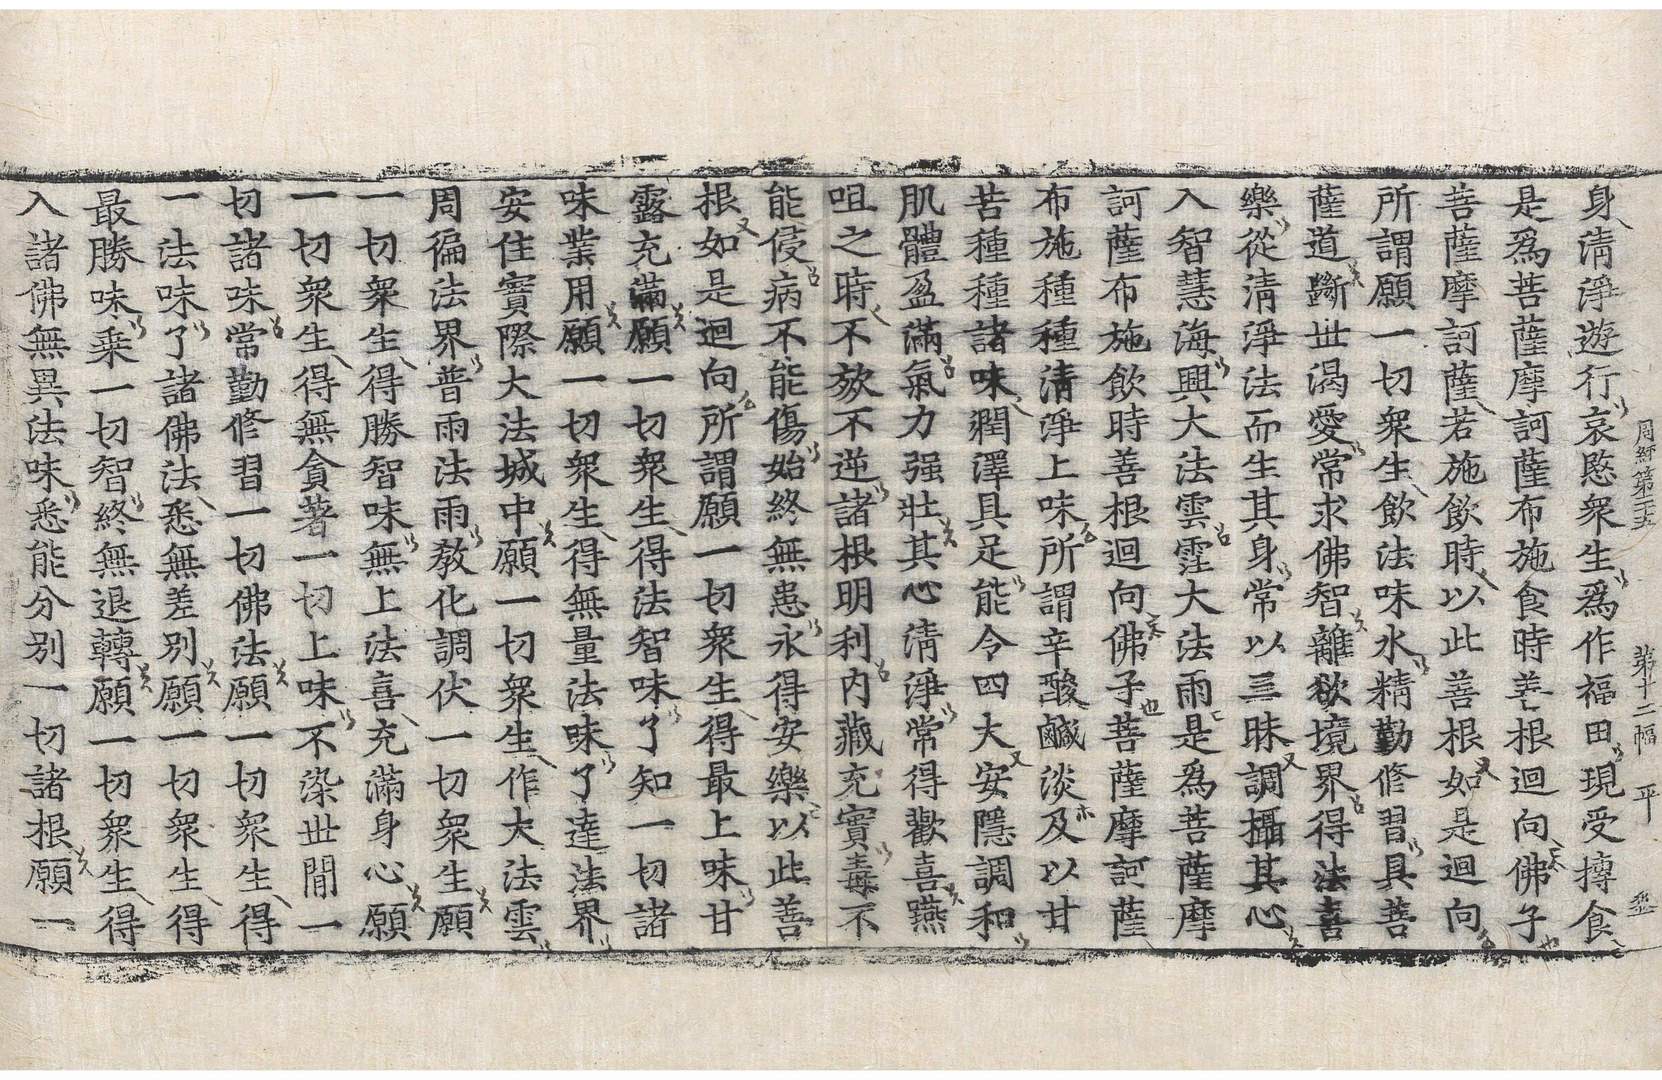 周經第二十五　第十二幅　平
身清淨遊行哀愍衆生爲作福田現受摶食
是爲菩薩摩訶薩布施食時善根迴向佛子
菩薩摩訶薩若施飲時以此善根如是迴向
所謂願一切衆生飲法味水精勤修習具菩
薩道斷世渴愛常求佛智離欲境界得法喜
樂從清淨法而生其身常以三昧調攝其心
入智慧海興大法雲霔大法雨是爲菩薩摩
訶薩布施飲時善根迴向佛子菩薩摩訶薩
布施種種清淨上味所謂辛酸鹹淡及以甘
苦種種諸味潤澤具足能令四大安隱調和
肌體盈滿氣力强壯其心清淨常得歡喜燕
咀之時不欬不逆諸根明利內藏充實毒不
能侵病不能傷始終無患永得安樂以此善
根如是迴向所謂願一切衆生得最上味甘
露充滿願一切衆生得法智味了知一切諸
味業用願一切衆生得無量法味了達法界
安住實際大法城中願一切衆生作大法雲
周徧法界普雨法雨教化調伏一切衆生願
一切衆生得勝智味無上法喜充滿身心願
一切衆生得無貪著一切上味不染世閒一
切諸味常勤修習一切佛法願一切衆生得
一法味了諸佛法悉無差別願一切衆生得
最勝味乗一切智終無退轉願一切衆生得
入諸佛無異法味悉能分別一切諸根願一